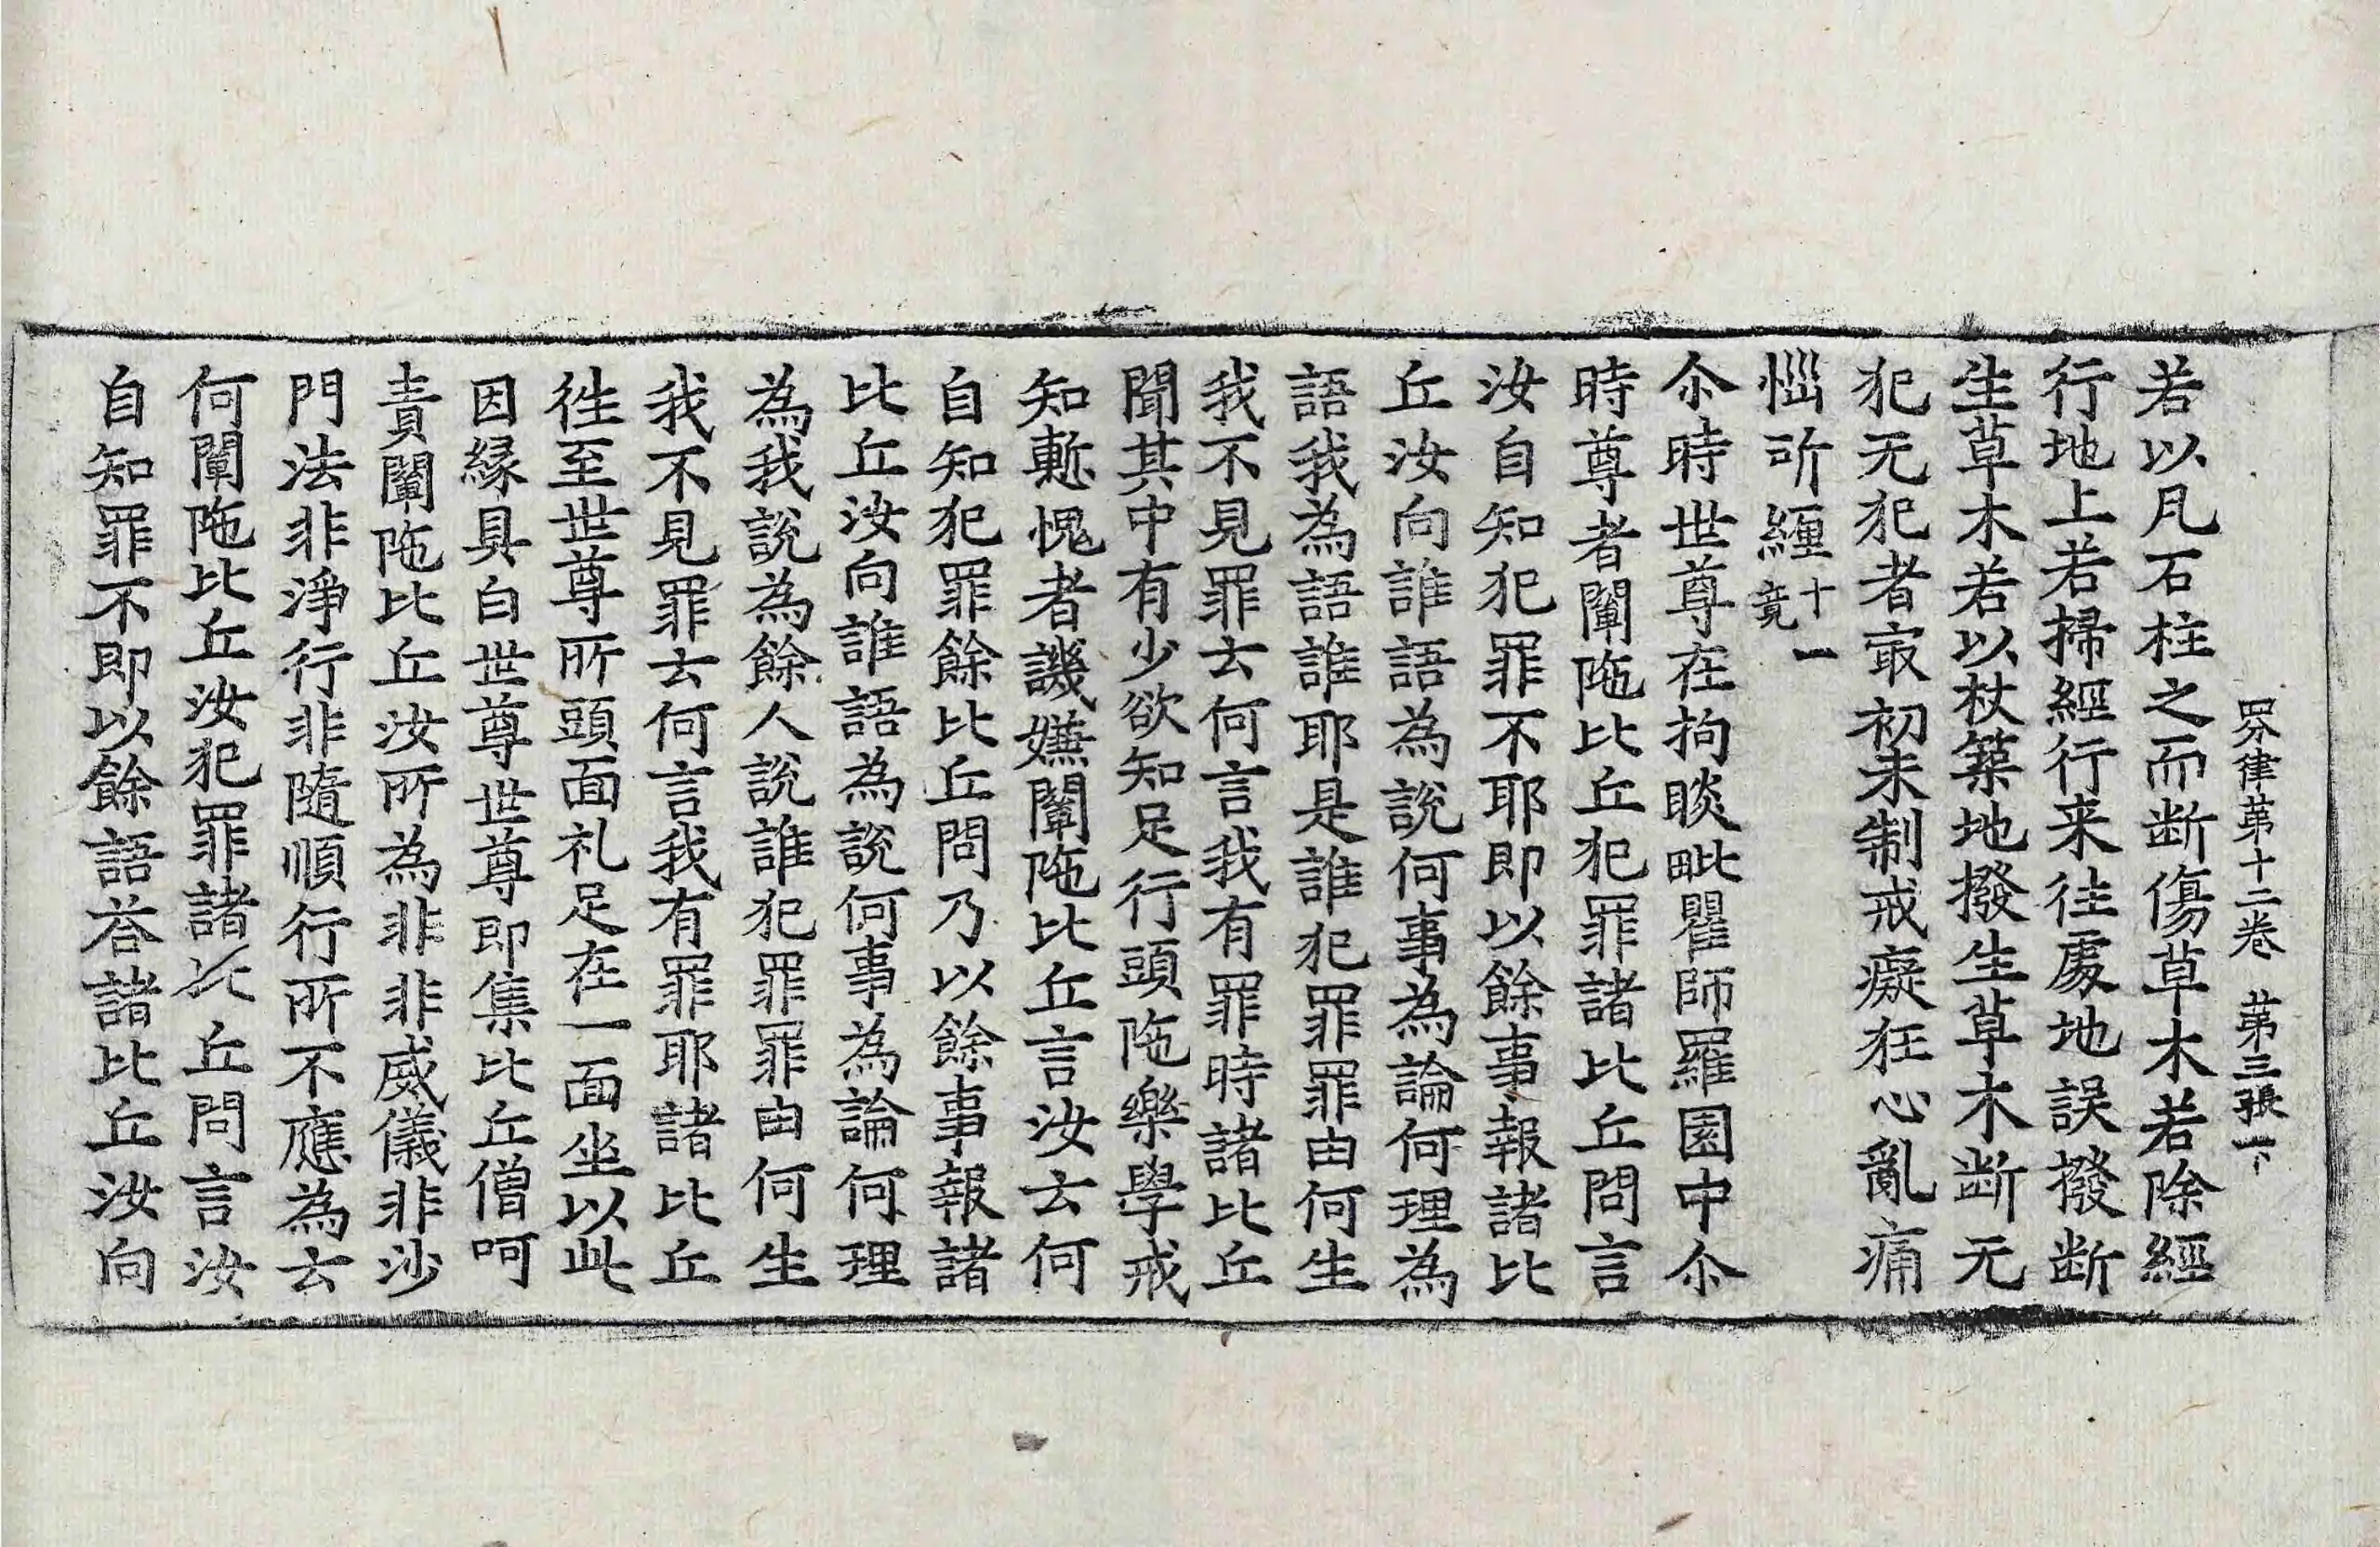 四分律第十二卷 第三張 下
若以凡石柱之而断傷草木若除經
行地上若掃經行来往處地誤撥断
生草木若以杖築地撥生草木断无
犯无犯者㝡初未制戒癡狂心亂痛
惱所纏十一竟
尒時世尊在拘睒毗瞿師羅園中尒
時尊者闡陁比丘犯罪諸比丘問言
汝自知犯罪不耶即以餘事報諸比
丘汝向誰語為說何事為論何理為
語我為語誰耶是誰犯罪罪由何生
我不見罪云何言我有罪時諸比丘
聞其中有少欲知足行頭陁樂學戒
知慙愧者譏嫌闡陁比丘言汝云何
自知犯罪餘比丘問乃以餘事報諸
比丘汝向誰語為說何事為論何理
為我說為餘人說誰犯罪罪由何生
我不見罪云何言我有罪耶諸比丘
徃至世尊所頭面礼足在一面坐以此
因緣具白世尊世尊即集比丘僧呵
責闡陁比丘汝所為非非威儀非沙
門法非淨行非隨順行所不應為云
何闡陁比丘汝犯罪諸比丘問言汝
自知罪不即以餘語荅諸比丘汝向